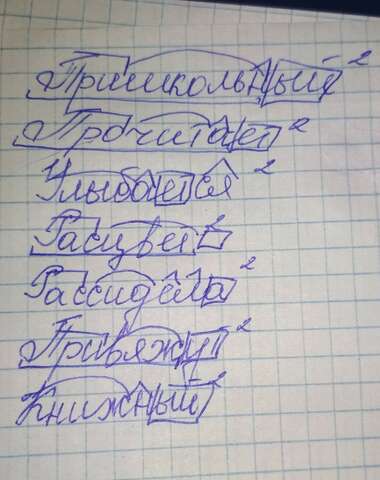 Пришкольный²
Прочитает²
Улыбается²
Расцвет²
Рассидела²
Привяжу²
Книжный²